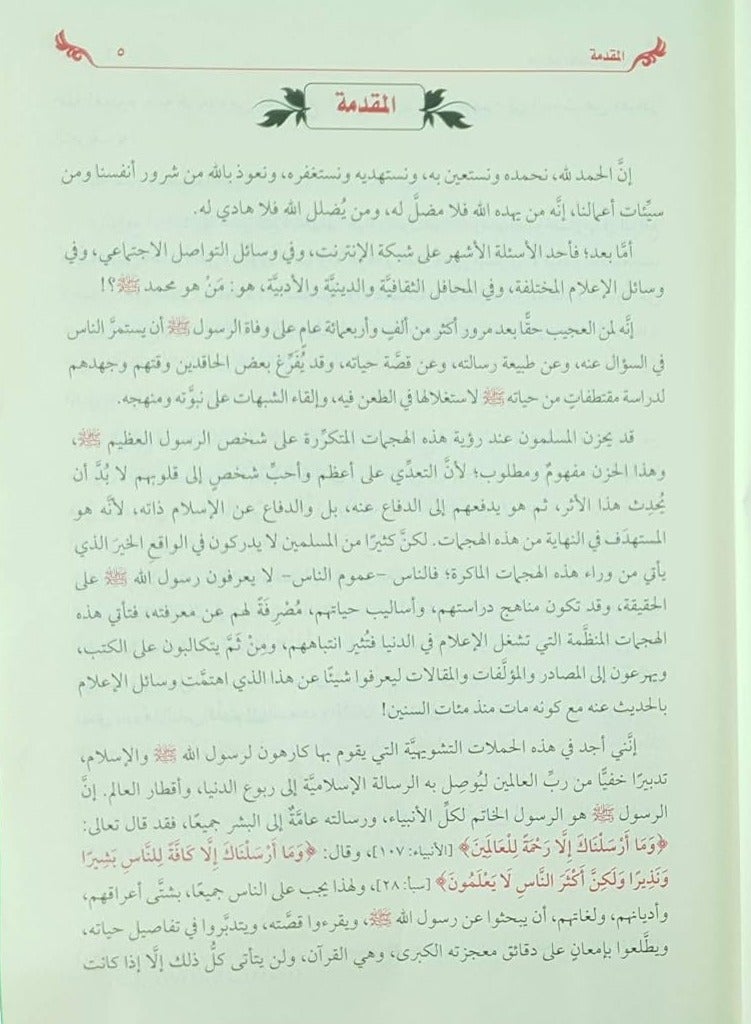 المقدمة
٥
المقدمة
إنَّ الحمد لله، نحمده ونستعين به، ونستهديه ونستغفره، ونعوذ بالله من شرور أنفسنا ومن
سيِّئات أعمالنا، إنَّه من يهده الله فلا مضلَّ له، ومن يُضلل الله فلا هادي له.
أمَّا بعد؛ فأحد الأسئلة الأشهر على شبكة الإنترنت، وفي وسائل التواصل الاجتماعي، وفي
وسائل الإعلام المختلفة، وفي المحافل الثقافيَّة والدينيَّة والأدبيَّة، هو: مَنْ هو محمد ﷺ؟!
إنَّه لمن العجيب حقًّا بعد مرور أكثر من ألفٍ وأربعمائة عام على وفاة الرسول ﷺ أن يستمرَّ الناس
في السؤال عنه، وعن طبيعة رسالته، وعن قصَّة حياته، وقد يُفَرِّغ بعض الحاقدين وقتهم وجهدهم
لدراسة مقتطفاتٍ من حياته ﷺ لاستغلالها في الطعن فيه، وإلقاء الشبهات على نبوَّته ومنهجه.
قد يحزن المسلمون عند رؤية هذه الهجمات المتكرِّرة على شخص الرسول العظيم ﷺ،
وهذا الحزن مفهومٌ ومطلوب؛ لأنَّ التعدِّي على أعظم وأحبِّ شخصٍ إلى قلوبهم لا بُدَّ أن
يُحدِث هذا الأثر، ثم هو يدفعهم إلى الدفاع عنه، بل والدفاع عن الإسلام ذاته، لأنَّه هو
المستهدَف في النهاية من هذه الهجمات. لكنَّ كثيرًا من المسلمين لا يدركون في الواقع الخيرَ الذي
يأتي من وراء هذه الهجمات الماكرة؛ فالناس -عموم الناس- لا يعرفون رسول الله ﷺ على
الحقيقة، وقد تكون مناهج دراستهم، وأساليب حياتهم، مُصْرِفَةً لهم عن معرفته، فتأتي هذه
الهجمات المنظَّمة التي تشغل الإعلام في الدنيا فتُثير انتباههم، ومِنْ ثَمَّ يتكالبون على الكتب،
ويهرعون إلى المصادر والمؤلَّفات والمقالات ليعرفوا شيئًا عن هذا الذي اهتمَّت وسائل الإعلام
بالحديث عنه مع كونه مات منذ مئات السنين!
إنَّني أجد في هذه الحملات التشويهيَّة التي يقوم بها كارهون لرسول الله ﷺ والإسلام،
تدبيرًا خفيًّا من ربِّ العالمين ليُوصِل به الرسالة الإسلاميَّة إلى ربوع الدنيا، وأقطار العالم. إنَّ
الرسول ﷺ هو الرسول الخاتم لكلِّ الأنبياء، ورسالته عامَّةٌ إلى البشر جميعًا، فقد قال تعالى:
﴿وَمَا أَرْسَلْنَاكَ إِلَّا رَحْمَةً لِلْعَالَمِينَ﴾ [الأنبياء: ١٠٧]، وقال: ﴿وَمَا أَرْسَلْنَاكَ إِلَّا كَافَّةً لِلنَّاسِ بَشِيرًا
وَنَذِيرًا وَلَكِنَّ أَكْثَرَ النَّاسِ لَا يَعْلَمُونَ﴾ [سبأ: ٢٨]، ولهذا يجب على الناس جميعًا، بشتَّى أعراقهم،
وأديانهم، ولغاتهم، أن يبحثوا عن رسول الله ﷺ، ويقرءوا قصَّته، ويتدبَّروا في تفاصيل حياته،
ويطَّلعوا بإمعانٍ على دقائق معجزته الكبرى، وهي القرآن، ولن يتأتى كلُّ ذلك إلَّا إذا كانت